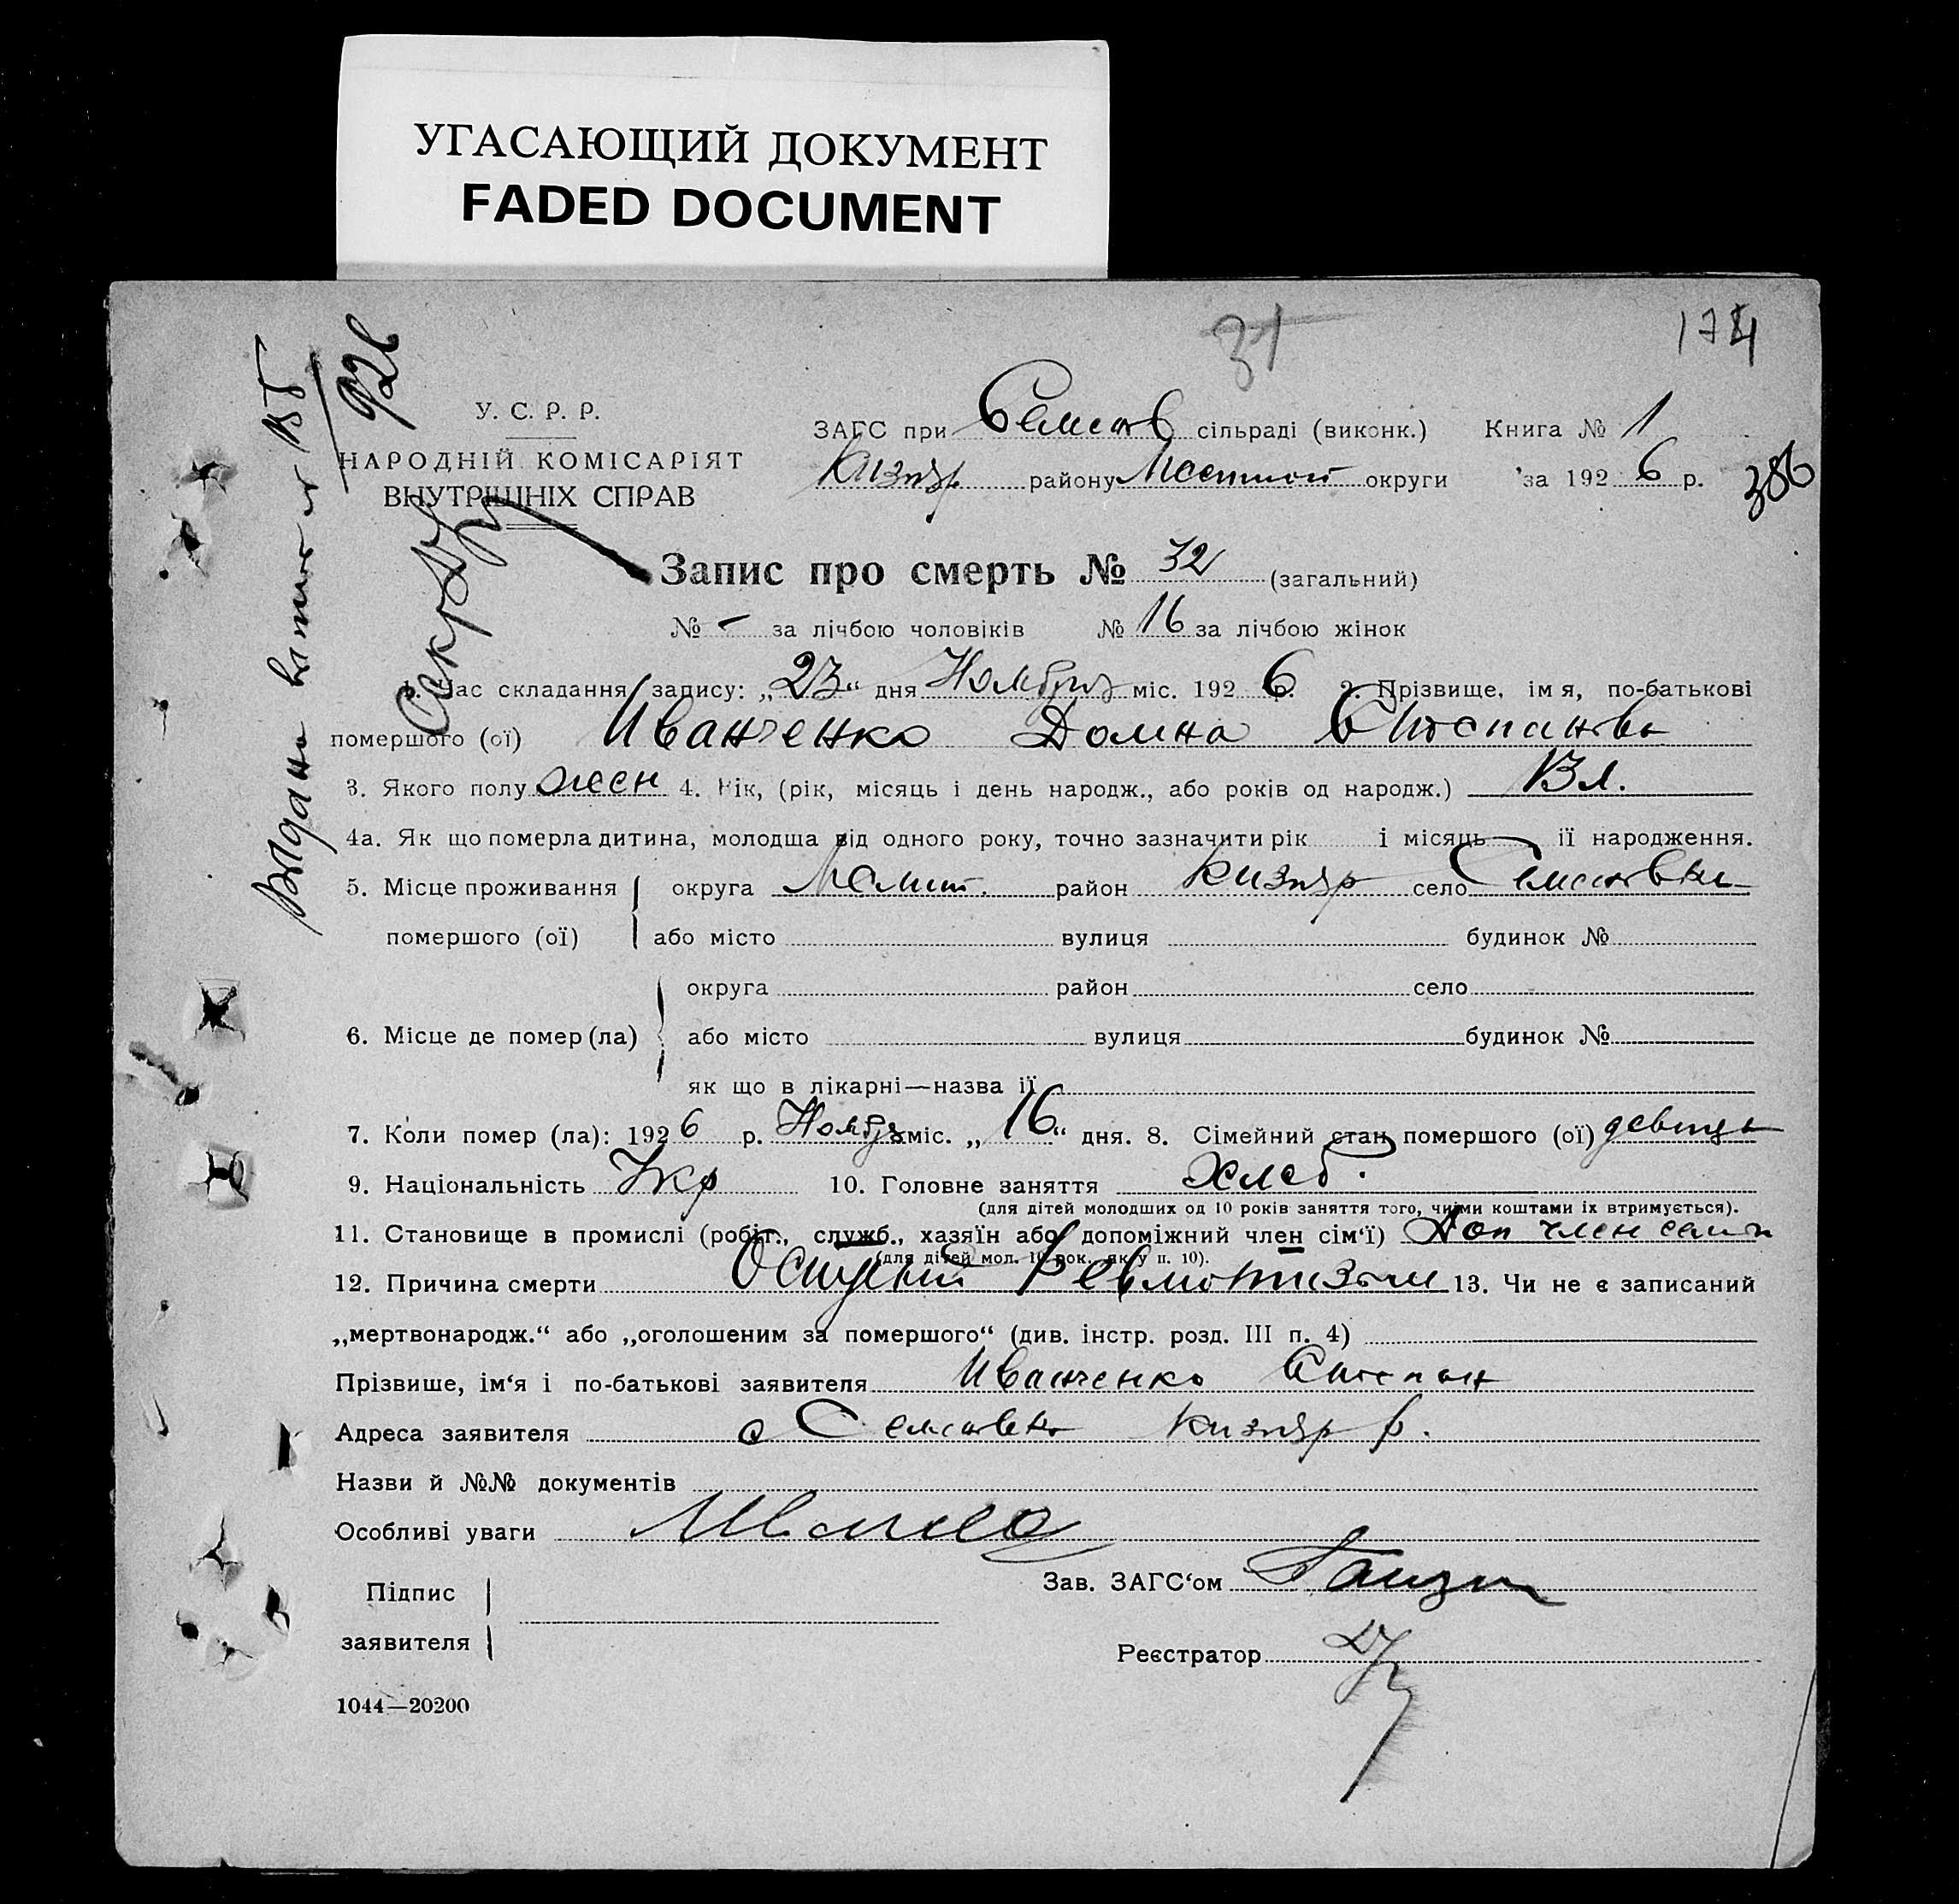 УГАСАЮЩИЙ ДОКУМЕНТ
FADED DOCUMENT
31
174
У. С. Р. Р.
НАРОДНІЙ КОМІСАРІЯТ
ВНУТРІШНІХ СПРАВ
926
ЗАГС при Семенов сільраді (виконк.) Книга № 1
Кизияр району Мелитоп округи за 1926 р.
386
Запис про смерть № 32 (загальний)
№ - за лічбою чоловіків № 16 за лічбою жінок
1. Час складання запису: „23“ дня Ноября міс. 1926 р. 2. Прізвище, імя, по-батькові
помершого (ої) Иванченко Домна Степановн
3. Якого полу жен 4. Вік, (рік, місяць і день народж., або років од народж.)
4а. Як що померла дитина, молодша від одного року, точно зазначити рік і місяць її народження.
5. Місце проживання округа Мелит. район Кизияр село Семеновка
помершого (ої) або місто вулиця будинок №
округа район село
6. Місце де помер (ла) або місто вулиця будинок №
як що в лікарні—назва її
7. Коли помер (ла): 1926 р. Ноября міс. „16“ дня. 8. Сімейний стан помершого (ої) девица
9. Національність Укр 10. Головне заняття Хлеб.
(для дітей молодших од 10 років заняття того, чиїми коштами їх втримується).
11. Становище в промислі (робіт., служб., хазяїн або допоміжний член сім‘ї) Доп член семи
(для дітей мол. 10 рок. як у п. 10).
12. Причина смерти Ревматизм 13. Чи не є записаний
„мертвонародж.“ або „оголошеним за помершого“ (див. інстр. розд. III п. 4)
Прізвише, ім‘я і по-батькові заявителя Иванченко Степан
Адреса заявителя с Семеновка Кизияр р.
Назви й №№ документів
Особливі уваги
Підпис
заявителя
Зав. ЗАГС‘ом
Реєстратор
1044—20200